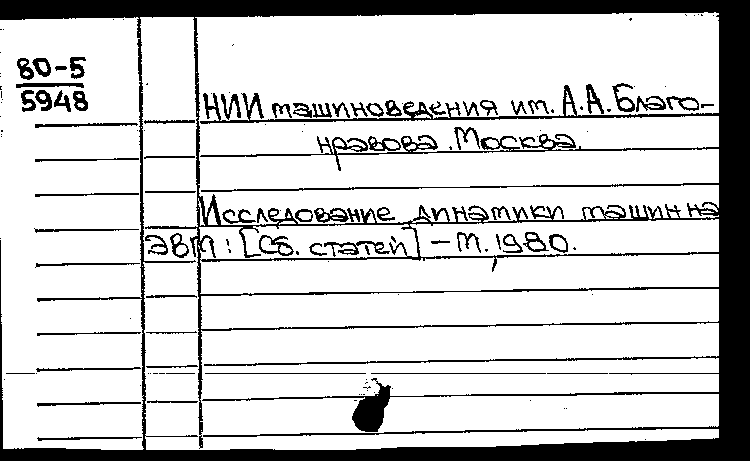 80-5
5948
НИИ машиноведения им. А.А.Благо-
нравова. Москва.
Исследование динамики машин на
ЭВМ: [Сб. статей] – М., 1980.